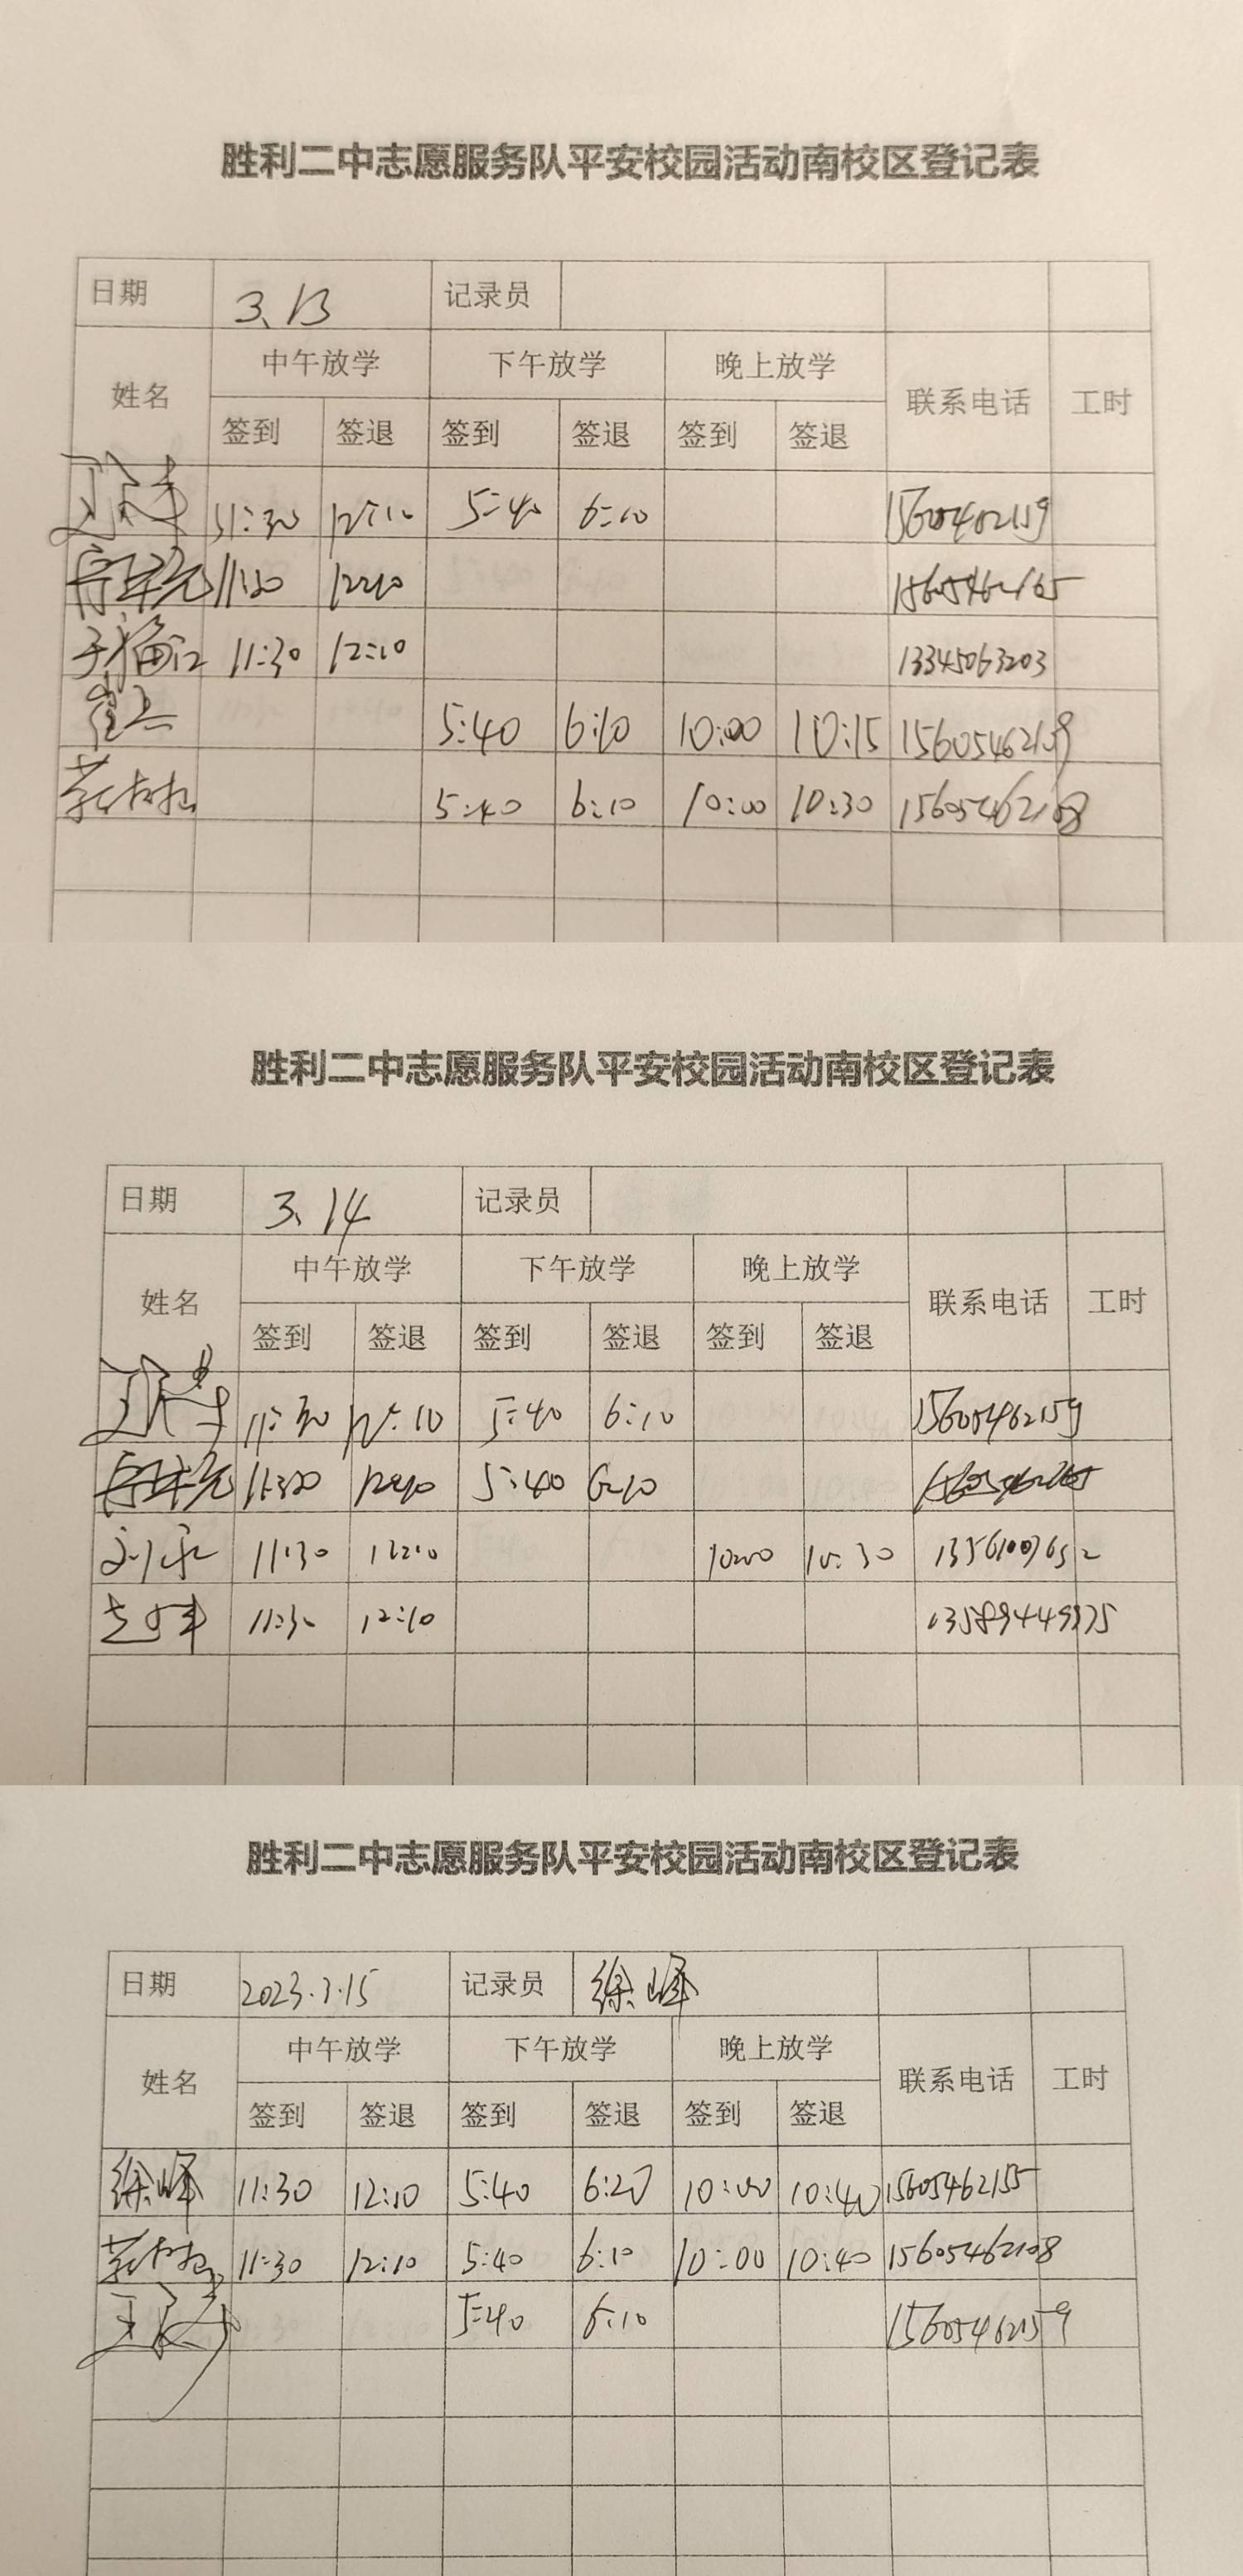 胜利二中志愿服务队平安校园活动南校区登记表
日期 3.13 记录员
中午放学 下午放学 晚上放学
姓名 联系电话 工时
签到 签退 签到 签退 签到 签退
11:30 12:10 5:40 6:10 15605462159
11:30 12:10 15605462165
11:30 12:10 13345063203
5:40 6:10 10:00 10:15
5:40 6:10 10:00 10:30 15605462108
胜利二中志愿服务队平安校园活动南校区登记表
日期 3.14 记录员
中午放学 下午放学 晚上放学
姓名 联系电话 工时
签到 签退 签到 签退 签到 签退
11:30 12:10 5:40 6:10 15605462159
11:30 12:10 5:40 6:10
11:30 12:10 10:00 10:30
11:30 12:10
胜利二中志愿服务队平安校园活动南校区登记表
日期 2023.3.15 记录员 徐峰
中午放学 下午放学 晚上放学
姓名 联系电话 工时
签到 签退 签到 签退 签到 签退
徐峰 11:30 12:10 5:40 6:20 10:00 10:40 15605462155
11:30 12:10 5:40 6:10 10:00 10:40 15605462108
5:40 6:10 15605462159